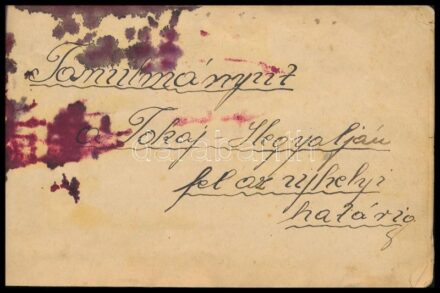 Tanulmányút
a Tokaj Hegyalján
fel az ujhelyi
határig
darabanth